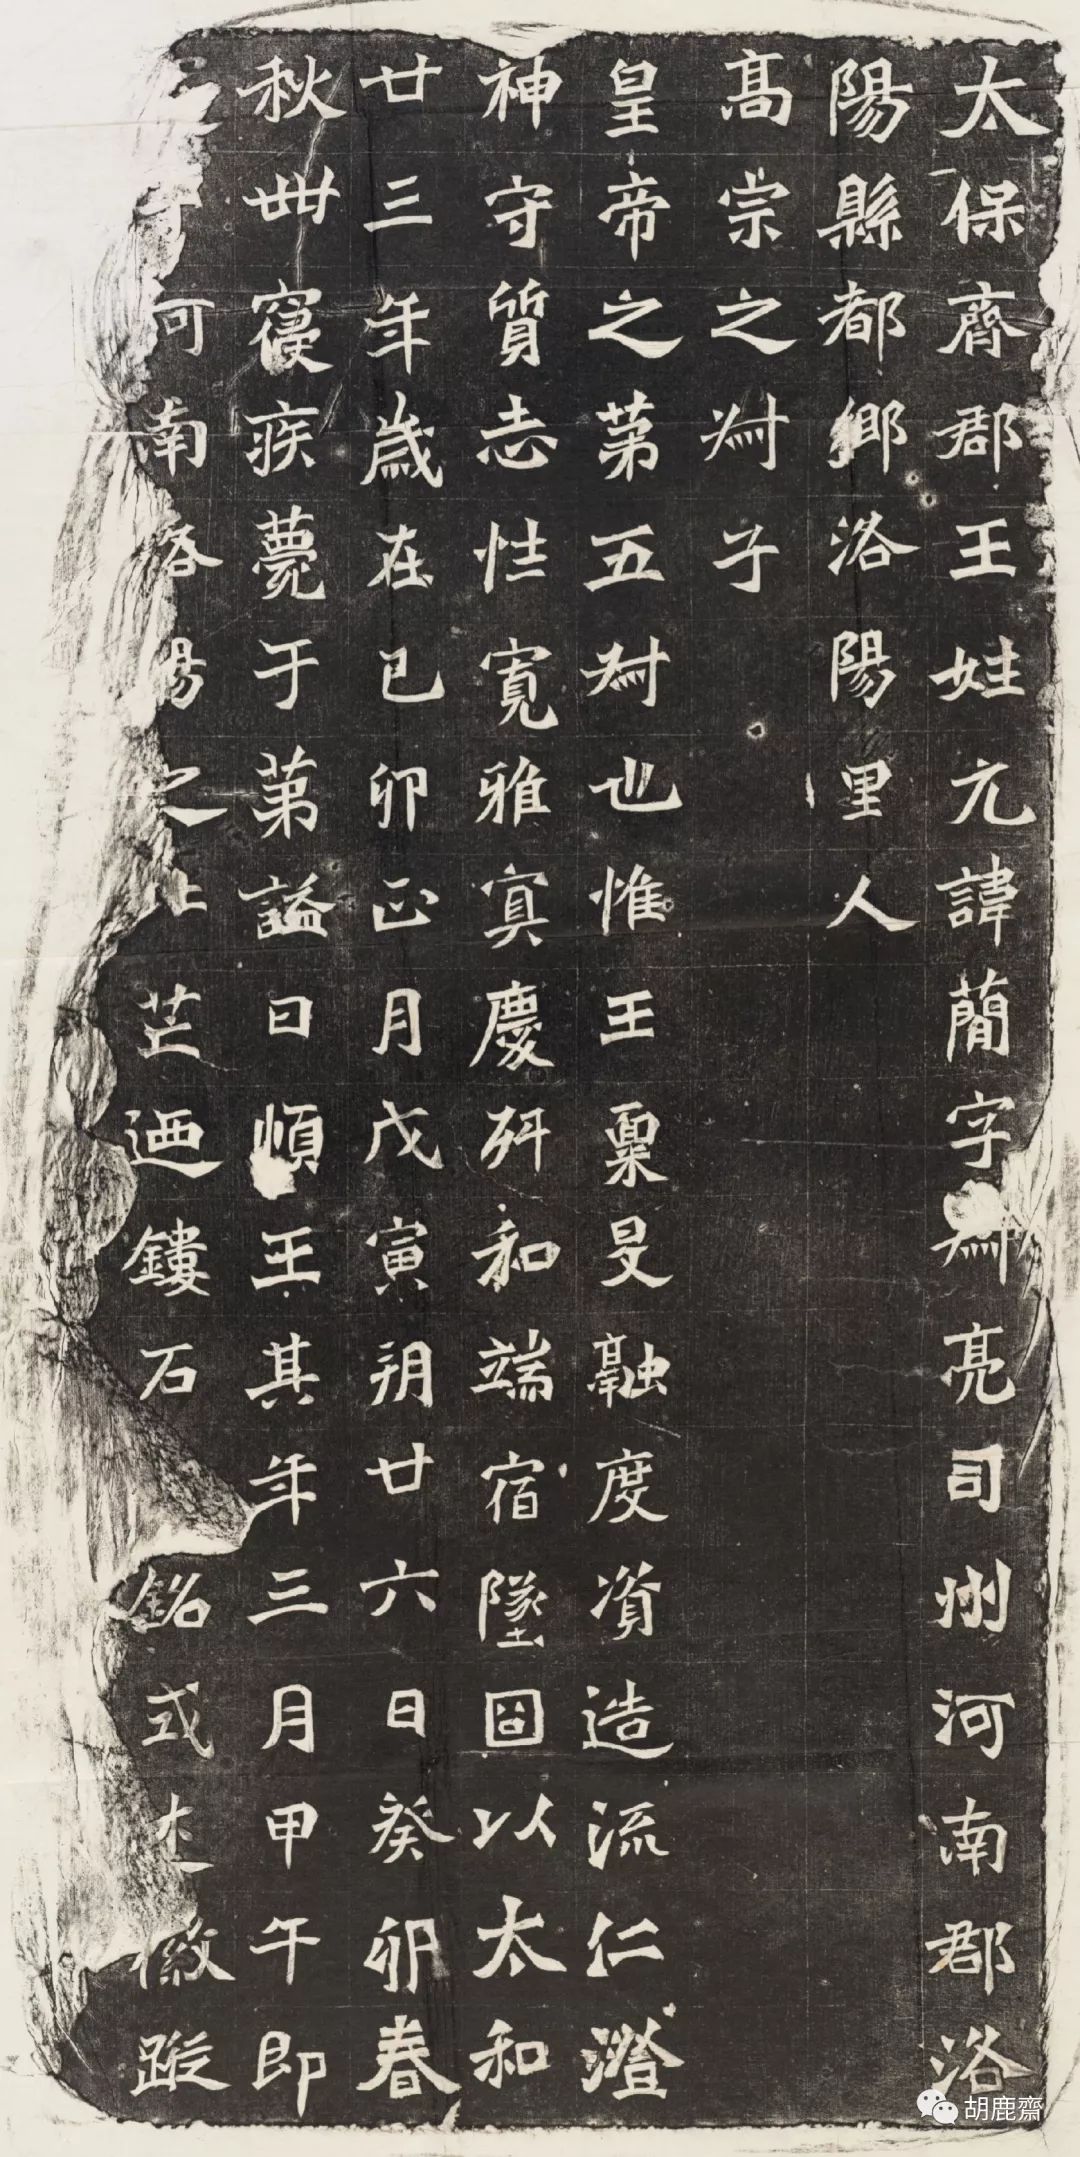 太保齊郡王姓元諱簡字叔亮司州河南郡洛
陽縣都鄉洛陽里人
高宗之叔子
皇帝之第五叔也惟王稟旻融度資造流仁澄
神守質志性寬雅寘慶舛和端宿墜囧以太和
廿三年歲在己卯正月戊寅朔廿六日癸卯春
秋卌寑疾薨于第謚曰順王其年三月甲午即
河南洛陽之北芒廼鏤石銘式徽蹤
胡鹿齋